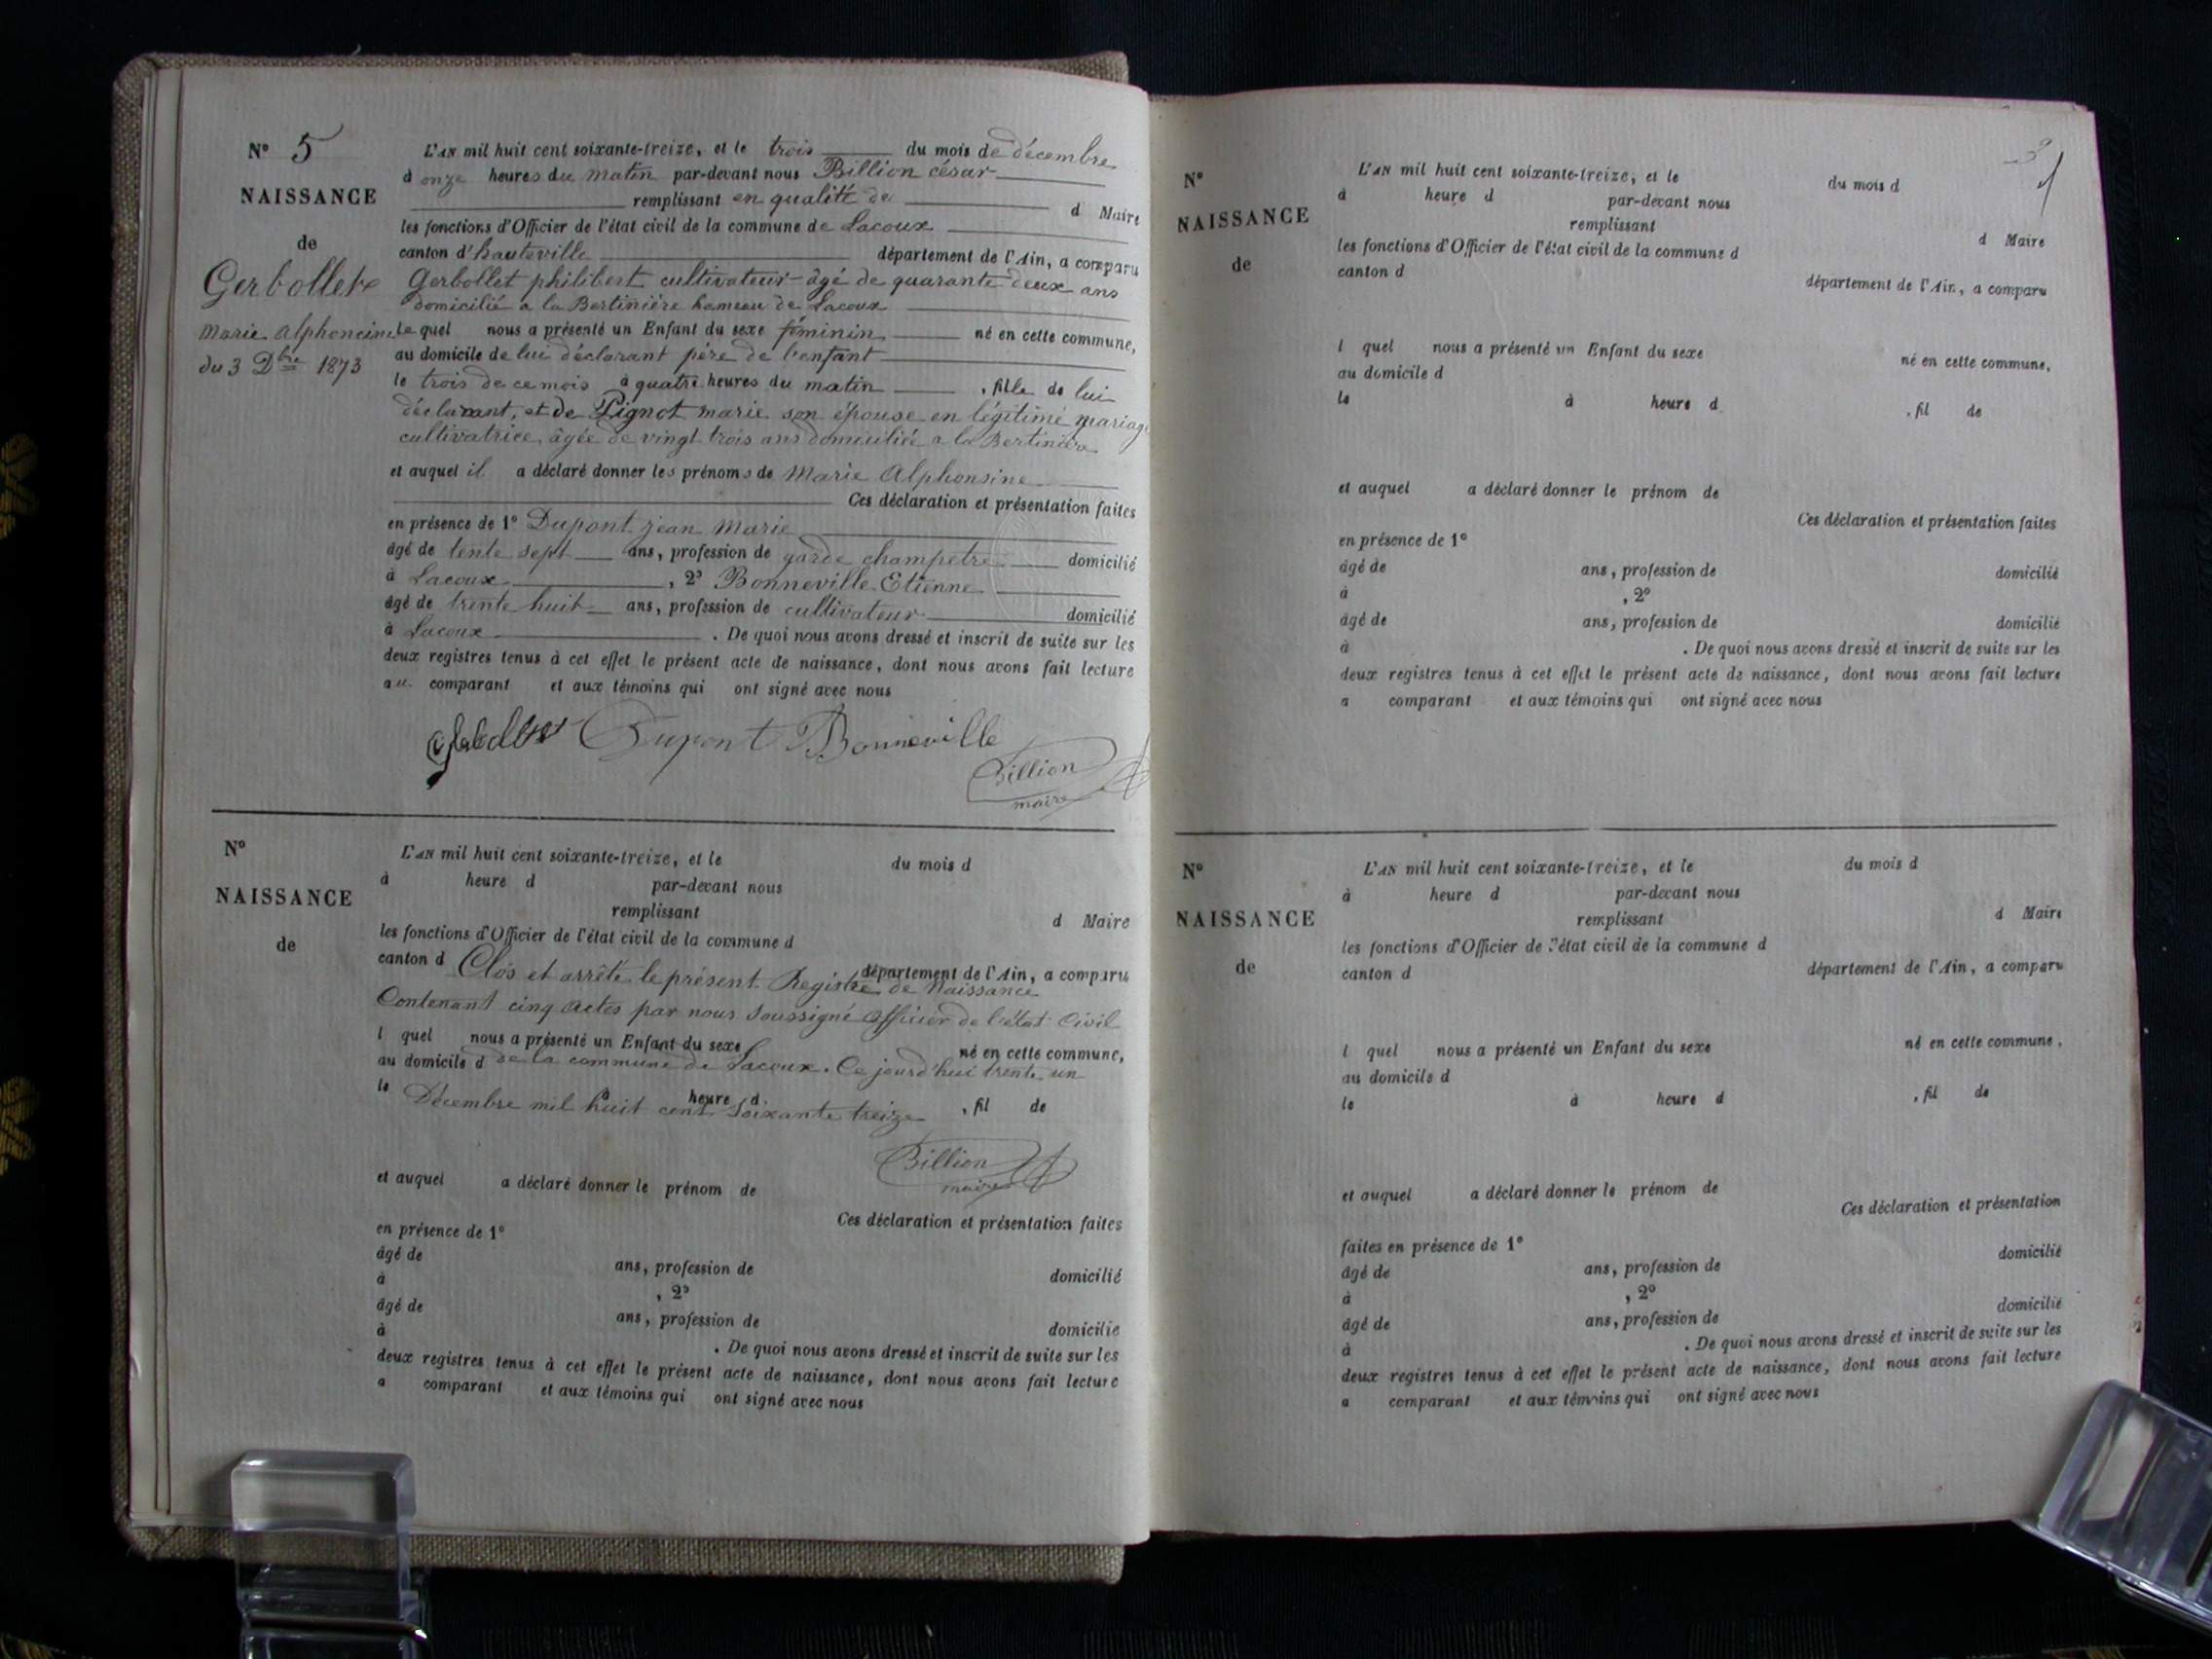 N° 5
NAISSANCE
de
Gerbollet
Marie Alphoncine
du 3 Dbre 1873
L'AN mil huit cent soixante-treize, et le trois du mois de décembre
à onze heures du matin par-devant nous Billion césar
remplissant en qualité de d Maire
les fonctions d'Officier de l'état civil de la commune de Lacoux
canton d'hauteville département de l'Ain, a comparu
Gerbollet philibert cultivateur âgé de quarante deux ans
domicilié a la Bertinière hameau de Lacoux
Le quel nous a présenté un Enfant du sexe féminin né en cette commune,
au domicile de lui déclarant père de l'enfant
le trois de ce mois à quatre heures du matin , fille de lui
déclarant, et de Pignot marie son épouse en légitime mariage
cultivatrice, âgée de vingt trois ans domiciliée a la Bertinière
et auquel il a déclaré donner les prénoms de Marie Alphonsine
Ces déclaration et présentation faites
en présence de 1° Dupont jean Marie
âgé de tente sept ans, profession de garde champetre domicilié
à Lacoux , 2° Bonneville Etienne
âgé de trente huit ans, profession de cultivateur domicilié
à Lacoux . De quoi nous avons dressé et inscrit de suite sur les
deux registres tenus à cet effet le présent acte de naissance, dont nous avons fait lecture
au comparant et aux témoins qui ont signé avec nous
Dupont Bonneville
Billion
maire
N°
NAISSANCE
de
L'AN mil huit cent soixante-treize, et le du mois d
à heure d par-devant nous
remplissant d Maire
les fonctions d'Officier de l'état civil de la commune d
canton d département de l'Ain, a comparu
Clos et arrêté le présent Registre de Naissance
Contenant cinq actes par nous soussigné officier de l'état Civil
l quel nous a présenté un Enfant du sexe né en cette commune,
au domicile d
de la commune de Lacoux. Ce jourd'hui trente un
le à heure d , fil de
Décembre mil huit cent soixante treize
Billion
maire
et auquel a déclaré donner le prénom de
Ces déclaration et présentation faites
en présence de 1°
âgé de ans, profession de domicilié
à , 2°
âgé de ans, profession de domicilié
à . De quoi nous avons dressé et inscrit de suite sur les
deux registres tenus à cet effet le présent acte de naissance, dont nous avons fait lecture
a comparant et aux témoins qui ont signé avec nous
3
N°
NAISSANCE
de
L'AN mil huit cent soixante-treize, et le du mois d
à heure d par-devant nous
remplissant d Maire
les fonctions d'Officier de l'état civil de la commune d
canton d département de l'Ain, a comparu
l quel nous a présenté un Enfant du sexe né en cette commune,
au domicile d
le à heure d , fil de
et auquel a déclaré donner le prénom de
Ces déclaration et présentation faites
en présence de 1°
âgé de ans, profession de domicilié
à , 2°
âgé de ans, profession de domicilié
à . De quoi nous avons dressé et inscrit de suite sur les
deux registres tenus à cet effet le présent acte de naissance, dont nous avons fait lecture
a comparant et aux témoins qui ont signé avec nous
N°
NAISSANCE
de
L'AN mil huit cent soixante-treize, et le du mois d
à heure d par-devant nous
remplissant d Maire
les fonctions d'Officier de l'état civil de la commune d
canton d département de l'Ain, a comparu
l quel nous a présenté un Enfant du sexe né en cette commune,
au domicile d
le à heure d , fil de
et auquel a déclaré donner le prénom de
Ces déclaration et présentation
faites en présence de 1°
âgé de ans, profession de domicilié
à , 2°
âgé de ans, profession de domicilié
à . De quoi nous avons dressé et inscrit de suite sur les
deux registres tenus à cet effet le présent acte de naissance, dont nous avons fait lecture
a comparant et aux témoins qui ont signé avec nous